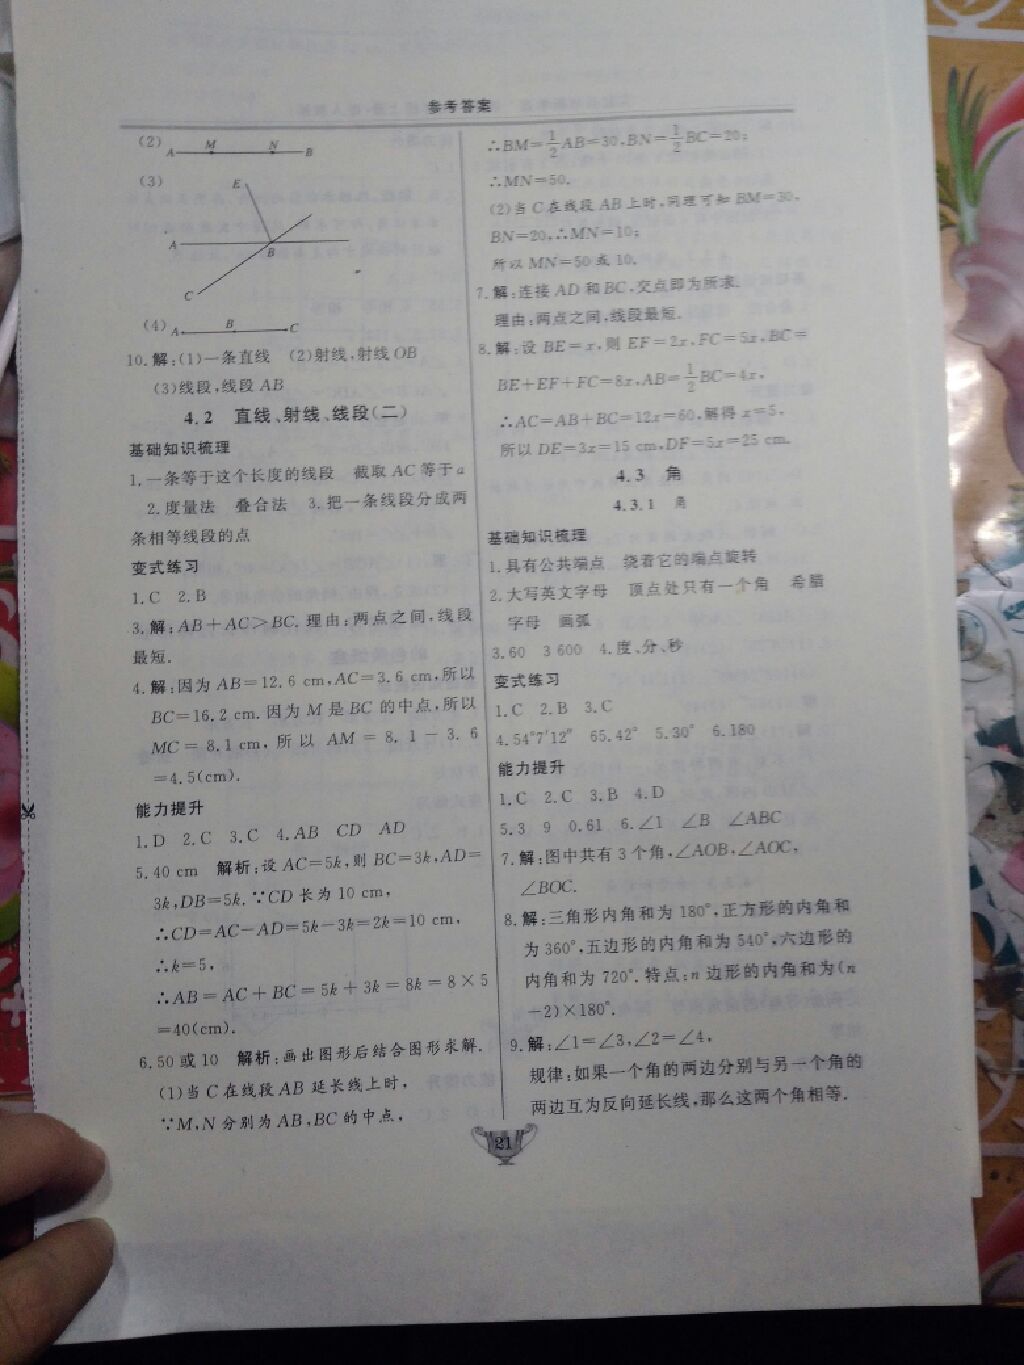 参考答案
(2) A M N B
(3) E
A B
C
(4) A B C
10.解:(1)一条直线 (2)射线,射线OB
(3)线段,线段AB
4.2 直线、射线、线段(二)
基础知识梳理
1.一条等于这个长度的线段 截取AC等于a
2.度量法 叠合法 3.把一条线段分成两
条相等线段的点
变式练习
1.C 2.B
3.解:AB+AC>BC.理由:两点之间,线段
最短.
4.解:因为AB=12.6 cm,AC=3.6 cm,所以
BC=16.2 cm.因为M是BC的中点,所以
MC=8.1 cm,所以 AM=8.1-3.6
=4.5(cm).
能力提升
1.D 2.C 3.C 4.AB CD AD
5.40 cm 解析:设AC=5k,则BC=3k,AD=
3k,DB=5k.∵CD长为10 cm,
∴CD=AC-AD=5k-3k=2k=10 cm,
∴k=5,
∴AB=AC+BC=5k+3k=8k=8×5
=40(cm).
6.50或10 解析:画出图形后结合图形求解.
(1)当C在线段AB延长线上时,
∵M,N分别为AB,BC的中点,
∴BM=1/2AB=30,BN=1/2BC=20;
∴MN=50.
(2)当C在线段AB上时,同理可知BM=30,
BN=20,∴MN=10;
所以MN=50或10.
7.解:连接AD和BC,交点即为所求.
理由:两点之间,线段最短.
8.解:设BE=x,则EF=2x,FC=5x,BC=
BE+EF+FC=8x,AB=1/2BC=4x,
∴AC=AB+BC=12x=60,解得x=5,
所以DE=3x=15 cm,DF=5x=25 cm.
4.3 角
4.3.1 角
基础知识梳理
1.具有公共端点 绕着它的端点旋转
2.大写英文字母 顶点处只有一个角 希腊
字母 画弧
3.60 3 600 4.度、分、秒
变式练习
1.C 2.B 3.C
4.54°7′12″ 65.42° 5.30° 6.180
能力提升
1.C 2.C 3.B 4.D
5.3 9 0.61 6.∠1 ∠B ∠ABC
7.解:图中共有3个角,∠AOB,∠AOC,
∠BOC.
8.解:三角形内角和为180°,正方形的内角和
为360°,五边形的内角和为540°,六边形的
内角和为720°.特点:n边形的内角和为(n
-2)×180°.
9.解:∠1=∠3,∠2=∠4,
规律:如果一个角的两边分别与另一个角的
两边互为反向延长线,那么这两个角相等.
21